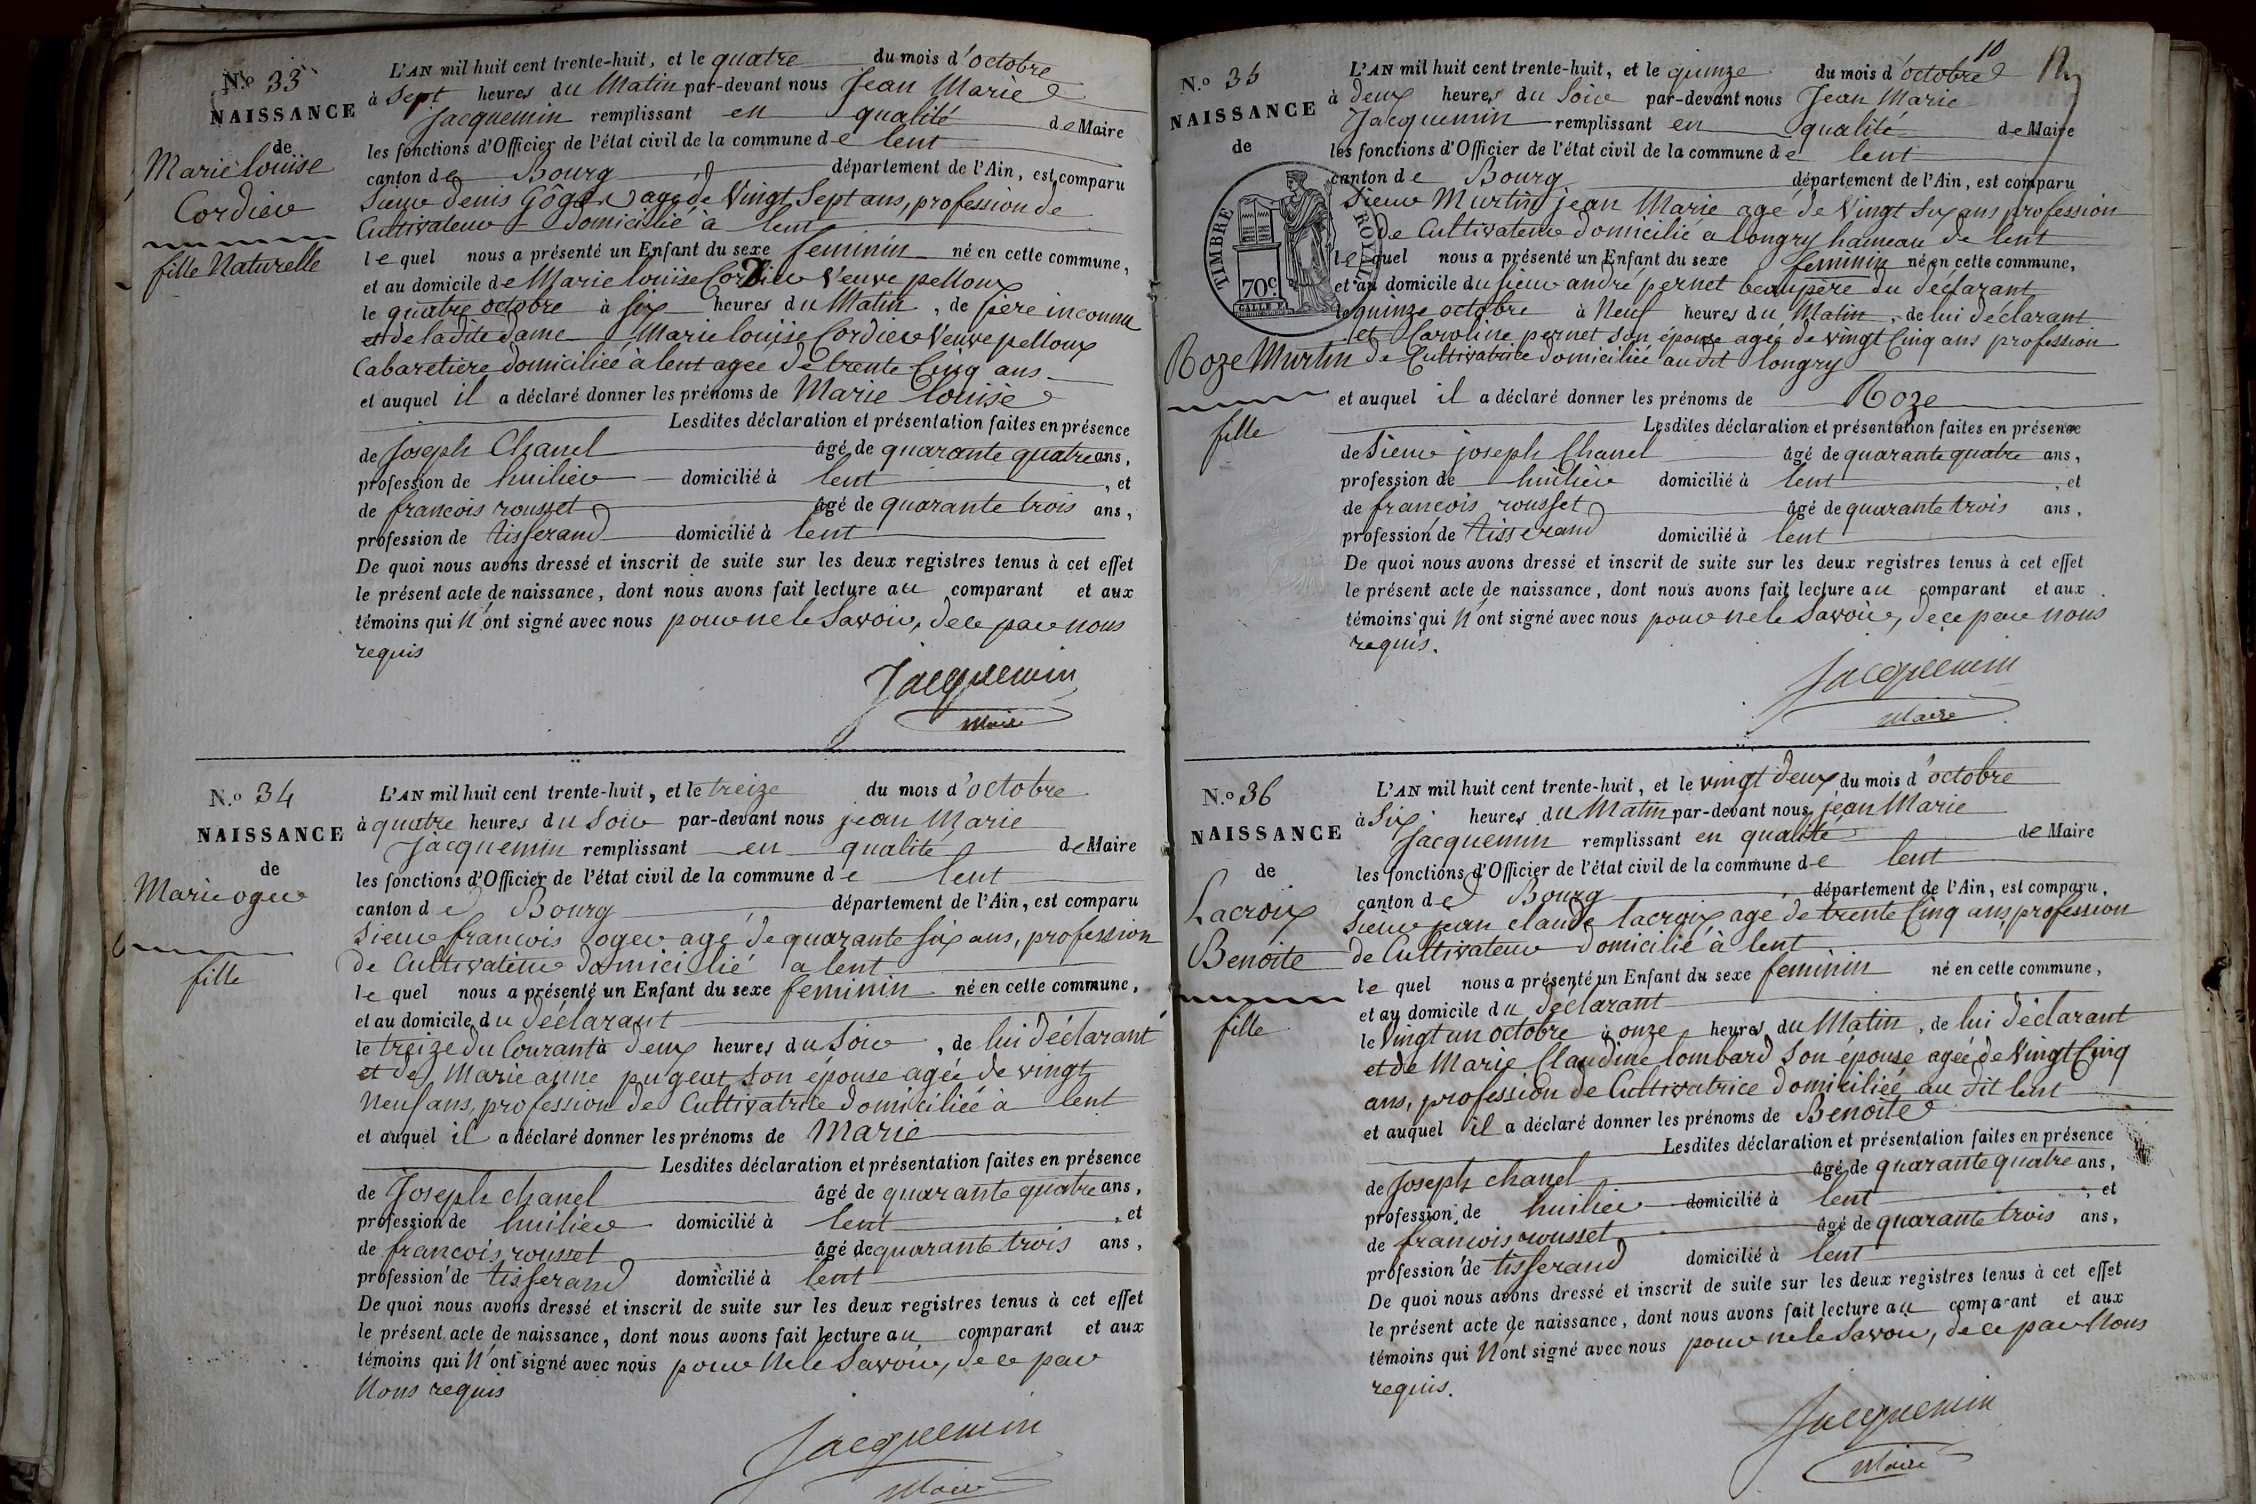 N.o 33
NAISSANCE
de
Marie louise
Cordier
fille Naturelle
L'AN mil huit cent trente-huit, et le quatre du mois d'octobre
à Sept heures du Matin par-devant nous Jean Marie
Jacquemin remplissant en qualité de Maire
les fonctions d'Officier de l'état civil de la commune de lent
canton de Bourg département de l'Ain, est comparu
Sieur denis agé de Vingt Sept ans, profession de
Cultivateur domicilié à lent
le quel nous a présenté un Enfant du sexe feminin né en cette commune,
et au domicile de Marie louise Cordier Veuve pelloux
le quatre octobre à six heures du Matin, de père inconnu
et de la dite dame Marie louise Cordier Veuve pelloux
Cabaretière domiciliée à lent agée de trente Cinq ans
et auquel il a déclaré donner les prénoms de Marie louise
Lesdites déclaration et présentation faites en présence
de Joseph Chanel âgé de quarante quatre ans,
profession de huilier domicilié à lent, et
de francois rousset âgé de quarante trois ans,
profession de tisserand domicilié à lent
De quoi nous avons dressé et inscrit de suite sur les deux registres tenus à cet effet
le présent acte de naissance, dont nous avons fait lecture au comparant et aux
témoins qui N'ont signé avec nous pour ne le Savoir, de ce par nous
requis
Jacquemin
Maire
N.o 34
NAISSANCE
de
Marie oger
fille
L'AN mil huit cent trente-huit, et le treize du mois d'octobre
à quatre heures du Soir par-devant nous jean Marie
Jacquemin remplissant en qualité de Maire
les fonctions d'Officier de l'état civil de la commune de lent
canton de Bourg département de l'Ain, est comparu
Sieur francois oger agé de quarante six ans, profession
de Cultivateur domicilié a lent
le quel nous a présenté un Enfant du sexe feminin né en cette commune,
et au domicile du déclarant
le treize du Courant à deux heures du Soir, de lui déclarant
et de Marie anne pugeat son épouse agée de vingt
Neuf ans, profession de Cultivatrice domiciliée à lent
et auquel il a déclaré donner les prénoms de Marie
Lesdites déclaration et présentation faites en présence
de Joseph chanel âgé de quarante quatre ans,
profession de huilier domicilié à lent, et
de francois rousset âgé de quarante trois ans,
profession de tisserand domicilié à lent
De quoi nous avons dressé et inscrit de suite sur les deux registres tenus à cet effet
le présent acte de naissance, dont nous avons fait lecture au comparant et aux
témoins qui N'ont signé avec nous pour Ne le Savoir, de ce par
Nous requis
Jacquemin
Maire
10
N.o 35
NAISSANCE
de
TIMBRE ROYAL
70c
Roze Murtin
fille
L'AN mil huit cent trente-huit, et le quinze du mois d'octobre
à deux heures du Soir par-devant nous Jean Marie
Jacquemin remplissant en qualité de Maire
les fonctions d'Officier de l'état civil de la commune de lent
canton de Bourg département de l'Ain, est comparu
Sieur Murtin jean Marie agé de Vingt Six ans profession
de Cultivateur domicilié a longry hameau de lent
le quel nous a présenté un Enfant du sexe feminin né en cette commune,
et au domicile du sieur andré pernet beaupère du déclarant
le quinze octobre à Neuf heures du Matin, de lui déclarant
et Caroline pernet son épouse agée de vingt Cinq ans profession
de Cultivatrice domiciliée au dit longry
et auquel il a déclaré donner les prénoms de Roze
Lesdites déclaration et présentation faites en présence
de Sieur joseph Chanel âgé de quarante quatre ans,
profession de huilier domicilié à lent, et
de francois rousset âgé de quarante trois ans,
profession de tisserand domicilié à lent
De quoi nous avons dressé et inscrit de suite sur les deux registres tenus à cet effet
le présent acte de naissance, dont nous avons fait lecture au comparant et aux
témoins qui N'ont signé avec nous pour ne le Savoir, de ce par nous
requis.
Jacquemin
Maire
N.o 36
NAISSANCE
de
Lacroix
Benoite
fille
L'AN mil huit cent trente-huit, et le vingt deux du mois d'octobre
à Six heures du Matin par-devant nous, jean Marie
Jacquemin remplissant en qualité de Maire
les fonctions d'Officier de l'état civil de la commune de lent
canton de Bourg département de l'Ain, est comparu,
Sieur jean claude lacroix agé de trente Cinq ans, profession
de Cultivateur domicilié à lent
le quel nous a présenté un Enfant du sexe feminin né en cette commune,
et au domicile du déclarant
le Vingt un octobre à onze heures du Matin, de lui déclarant
et de Marie Claudine lombard son épouse agée de Vingt Cinq
ans, profession de Cultivatrice domiciliée au dit lent
et auquel il a déclaré donner les prénoms de Benoite
Lesdites déclaration et présentation faites en présence
de Joseph chanel âgé de quarante quatre ans,
profession de huilier domicilié à lent, et
de francois rousset âgé de quarante trois ans,
profession de tisserand domicilié à lent
De quoi nous avons dressé et inscrit de suite sur les deux registres tenus à cet effet
le présent acte de naissance, dont nous avons fait lecture au comparant et aux
témoins qui N'ont signé avec nous pour ne le Savoir, de ce par Nous
requis.
Jacquemin
Maire